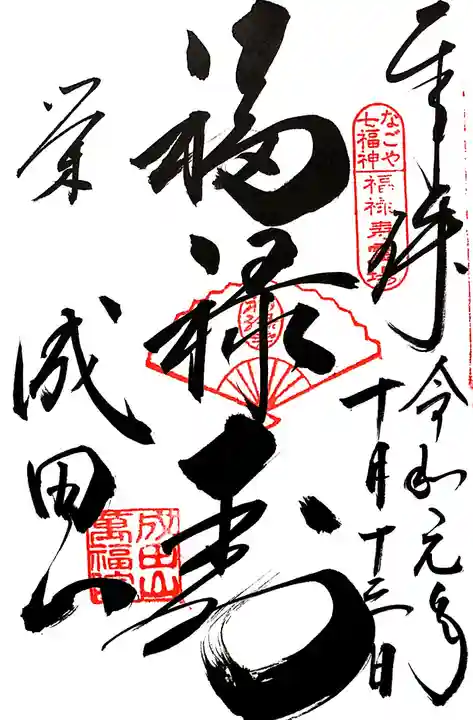 奉拝
令和元年
十月十三日
なごや
七福神
福禄寿霊場
福禄寿
栄
成田山
成田山
萬福院